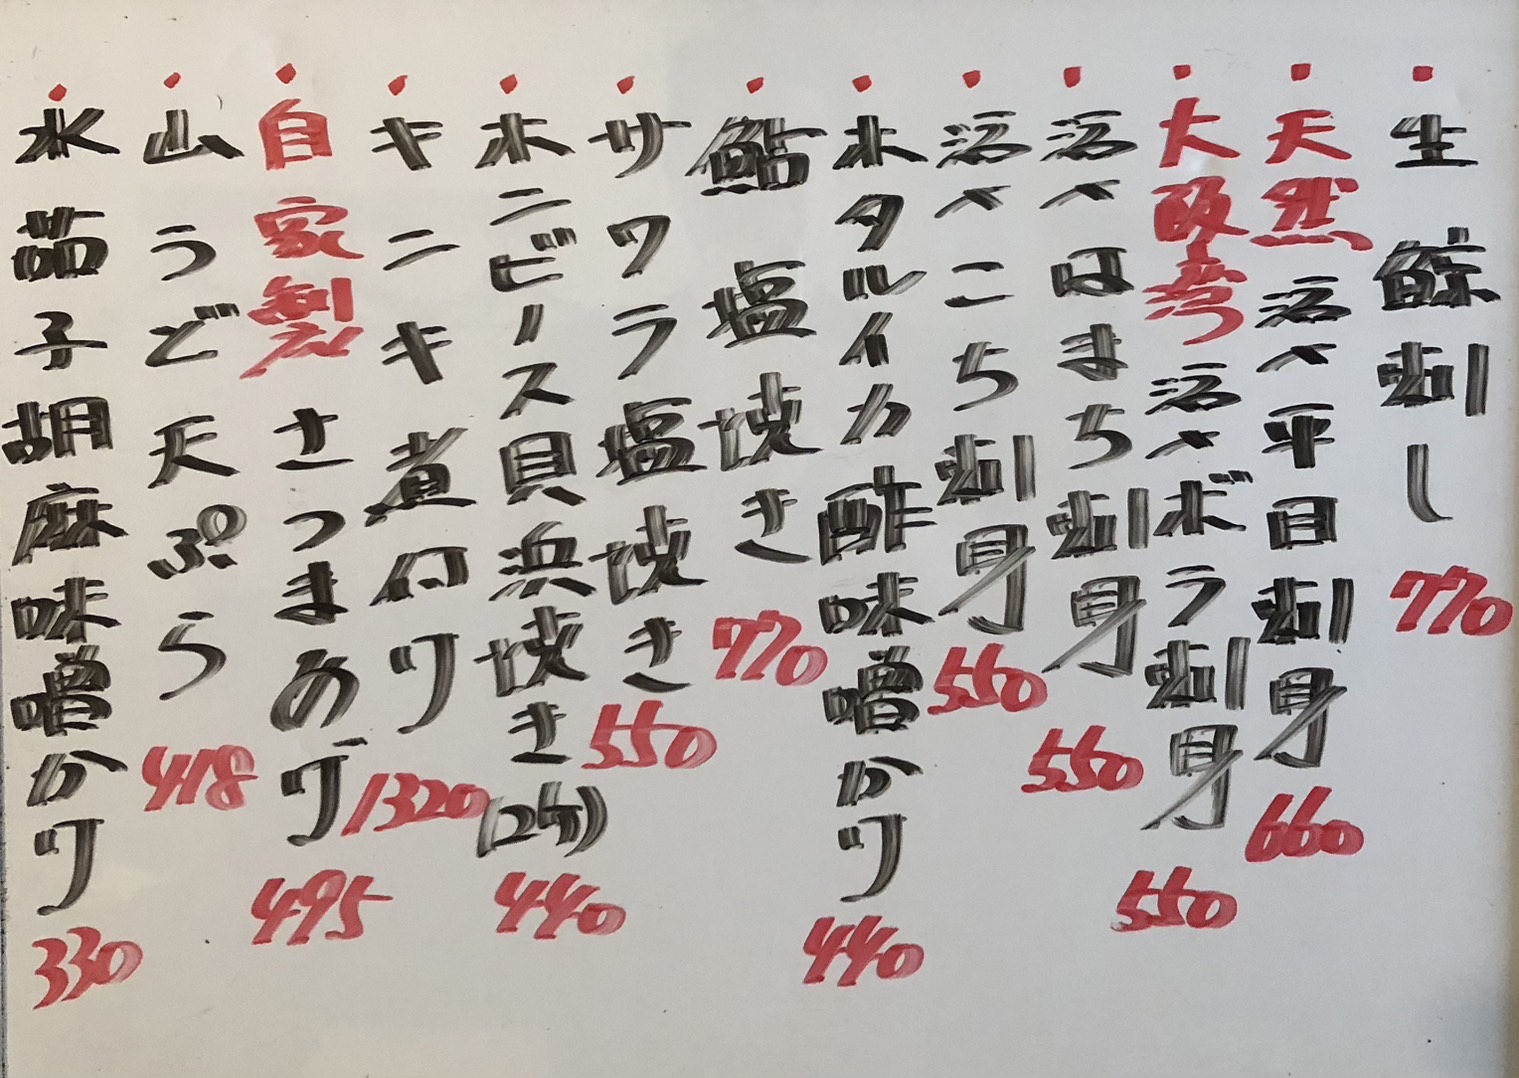 生鯨刺し 770
天然活〆平目刺身 660
大阪湾活〆ボラ刺身 550
活〆はまち刺身 550
活〆こち刺身 550
ホタルイカ酢味噌かけ 440
鮎塩焼き 770
サワラ塩焼き 550
ホンビーノス貝浜焼き(2ケ) 440
キンキ煮付け 1320
自家製さつまあげ 495
山うど天ぷら 418
水茄子胡麻味噌かけ 330